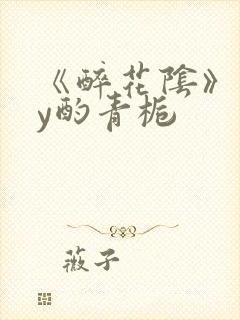 《醉花陰》
y酌青栀
薇子